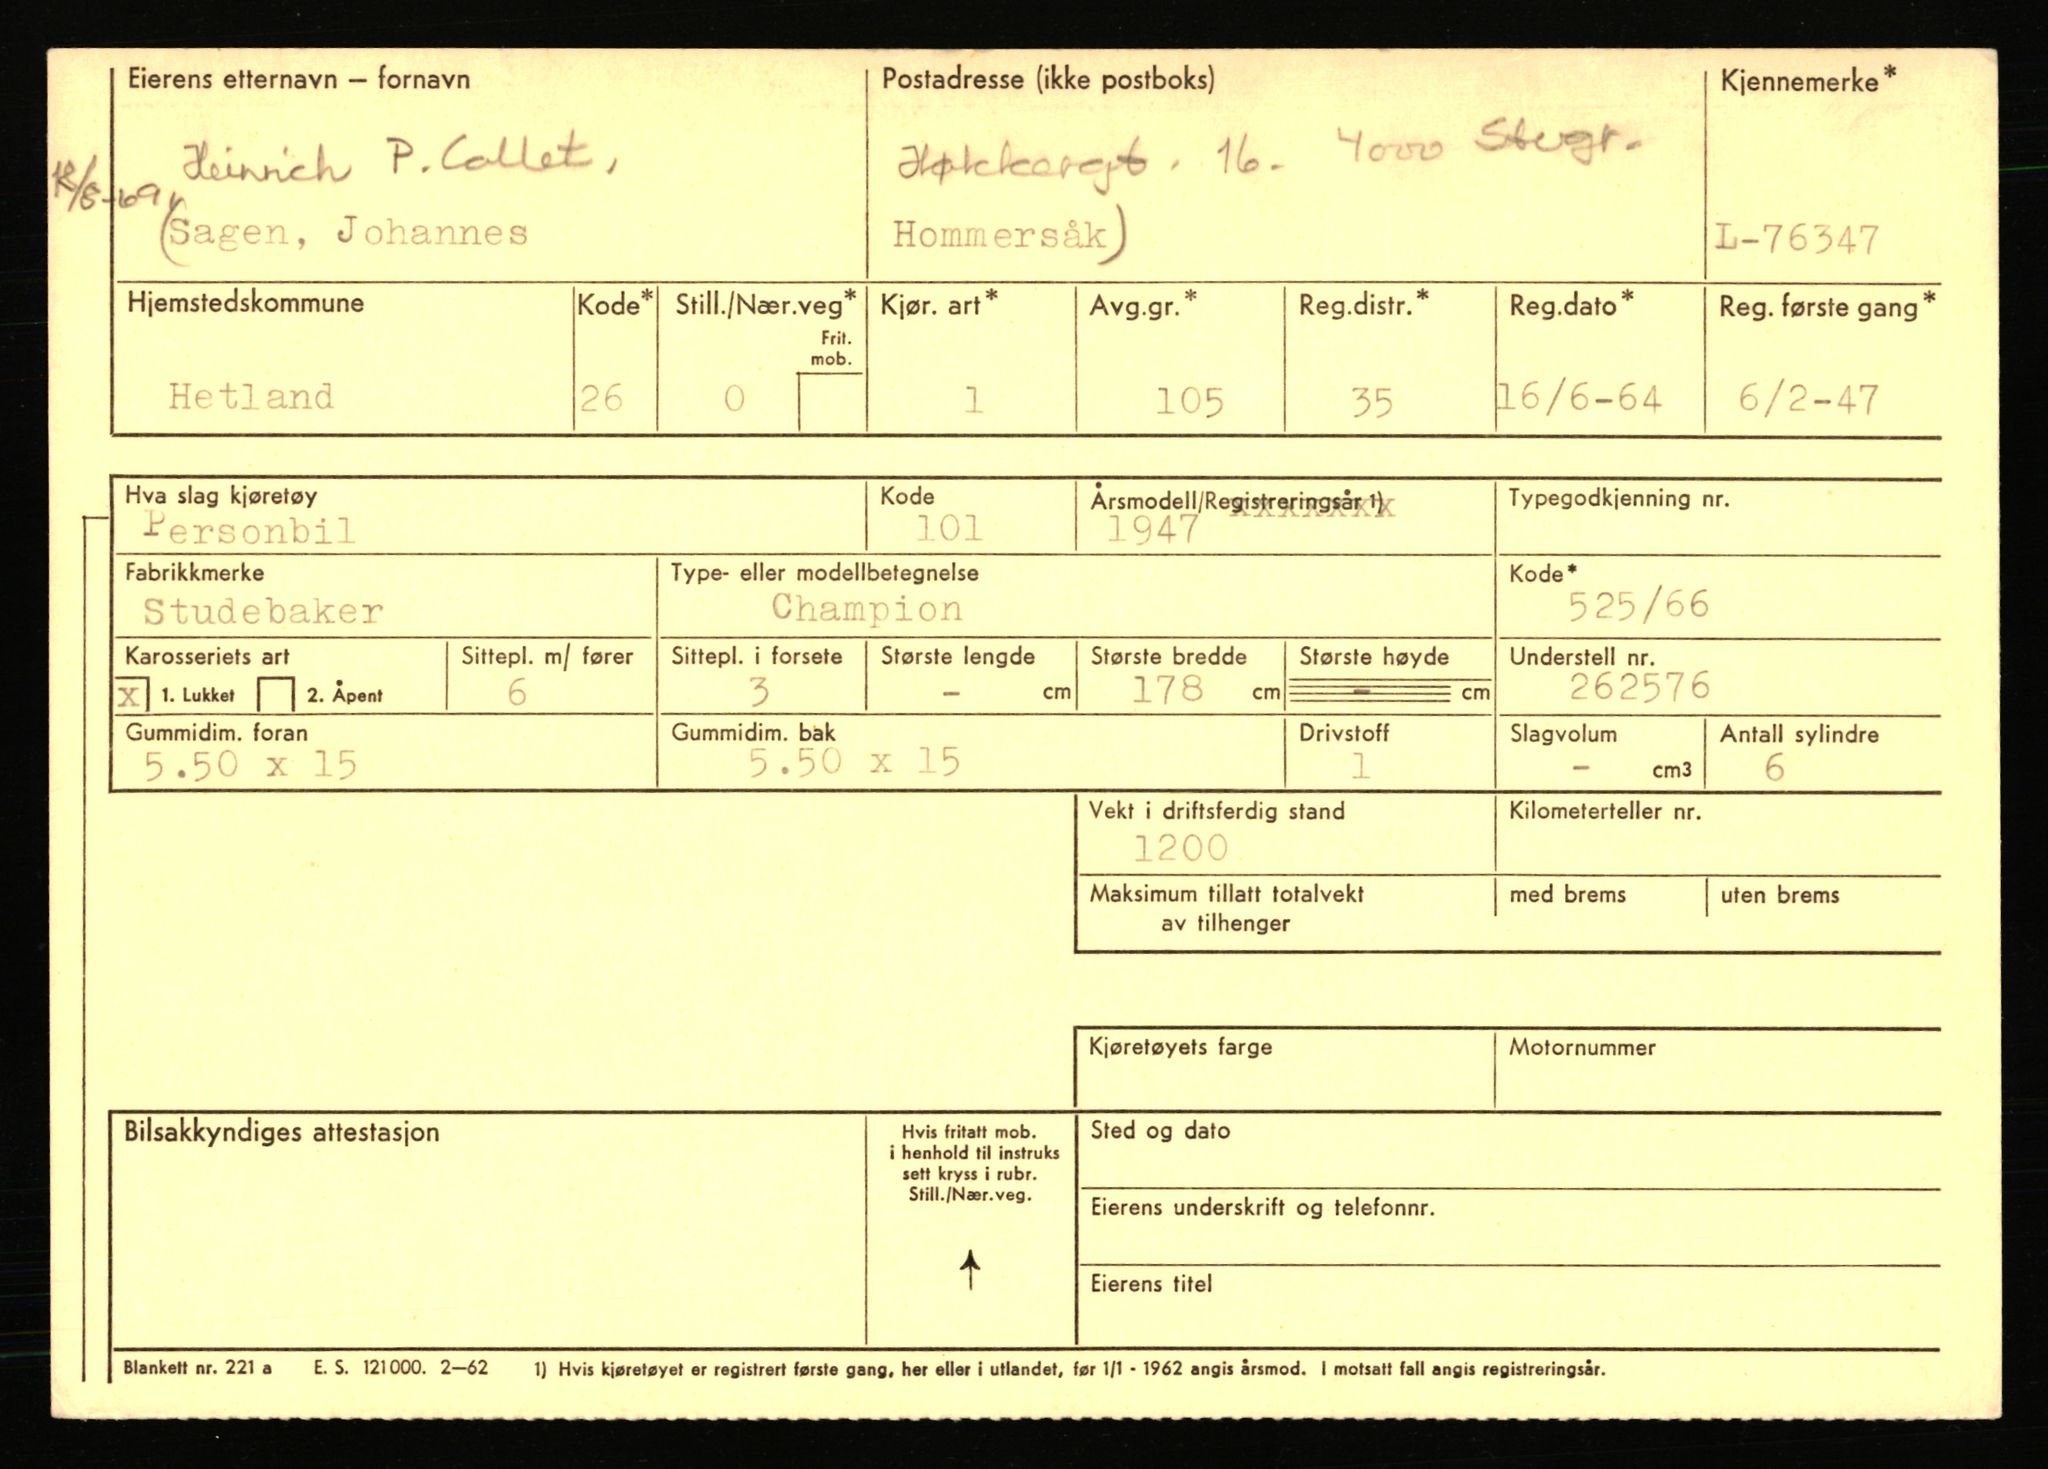 Eierens etternavn — fornavn Postadresse (ikke postboks) Kjennemerke*
Heinrich P. Collet, 16. 4000 Stvgr.
(Sagen, Johannes Hommersåk) L-76347
Hjemstedskommune Kode* Still./Nær.veg* Kjør. art* Avg.gr.* Reg.distr.* Reg.dato* Reg. første gang*
Frit.
mob.
Hetland 26 0 1 105 35 16/6-64 6/2-47
Hva slag kjøretøy Kode Årsmodell/Registreringsår 1) Typegodkjenning nr.
Personbil 101 1947 xxxxxxx
Fabrikkmerke Type- eller modellbetegnelse Kode*
Studebaker Champion 525/66
Karosseriets art Sittepl. m/ fører Sittepl. i forsete Største lengde Største bredde Største høyde Understell nr.
x 1. Lukket 2. Åpent 6 3 - cm 178 cm - cm 262576
Gummidim. foran Gummidim. bak Drivstoff Slagvolum Antall sylindre
5.50 x 15 5.50 x 15 1 - cm3 6
Vekt i driftsferdig stand Kilometerteller nr.
1200
Maksimum tillatt totalvekt med brems uten brems
av tilhenger
Kjøretøyets farge Motornummer
Bilsakkyndiges attestasjon Hvis fritatt mob. Sted og dato
i henhold til instruks
sett kryss i rubr.
Still./Nær.veg.
Eierens underskrift og telefonnr.
Eierens titel
Blankett nr. 221 a E. S. 121000. 2—62 1) Hvis kjøretøyet er registrert første gang, her eller i utlandet, før 1/1 - 1962 angis årsmod. I motsatt fall angis registreringsår.